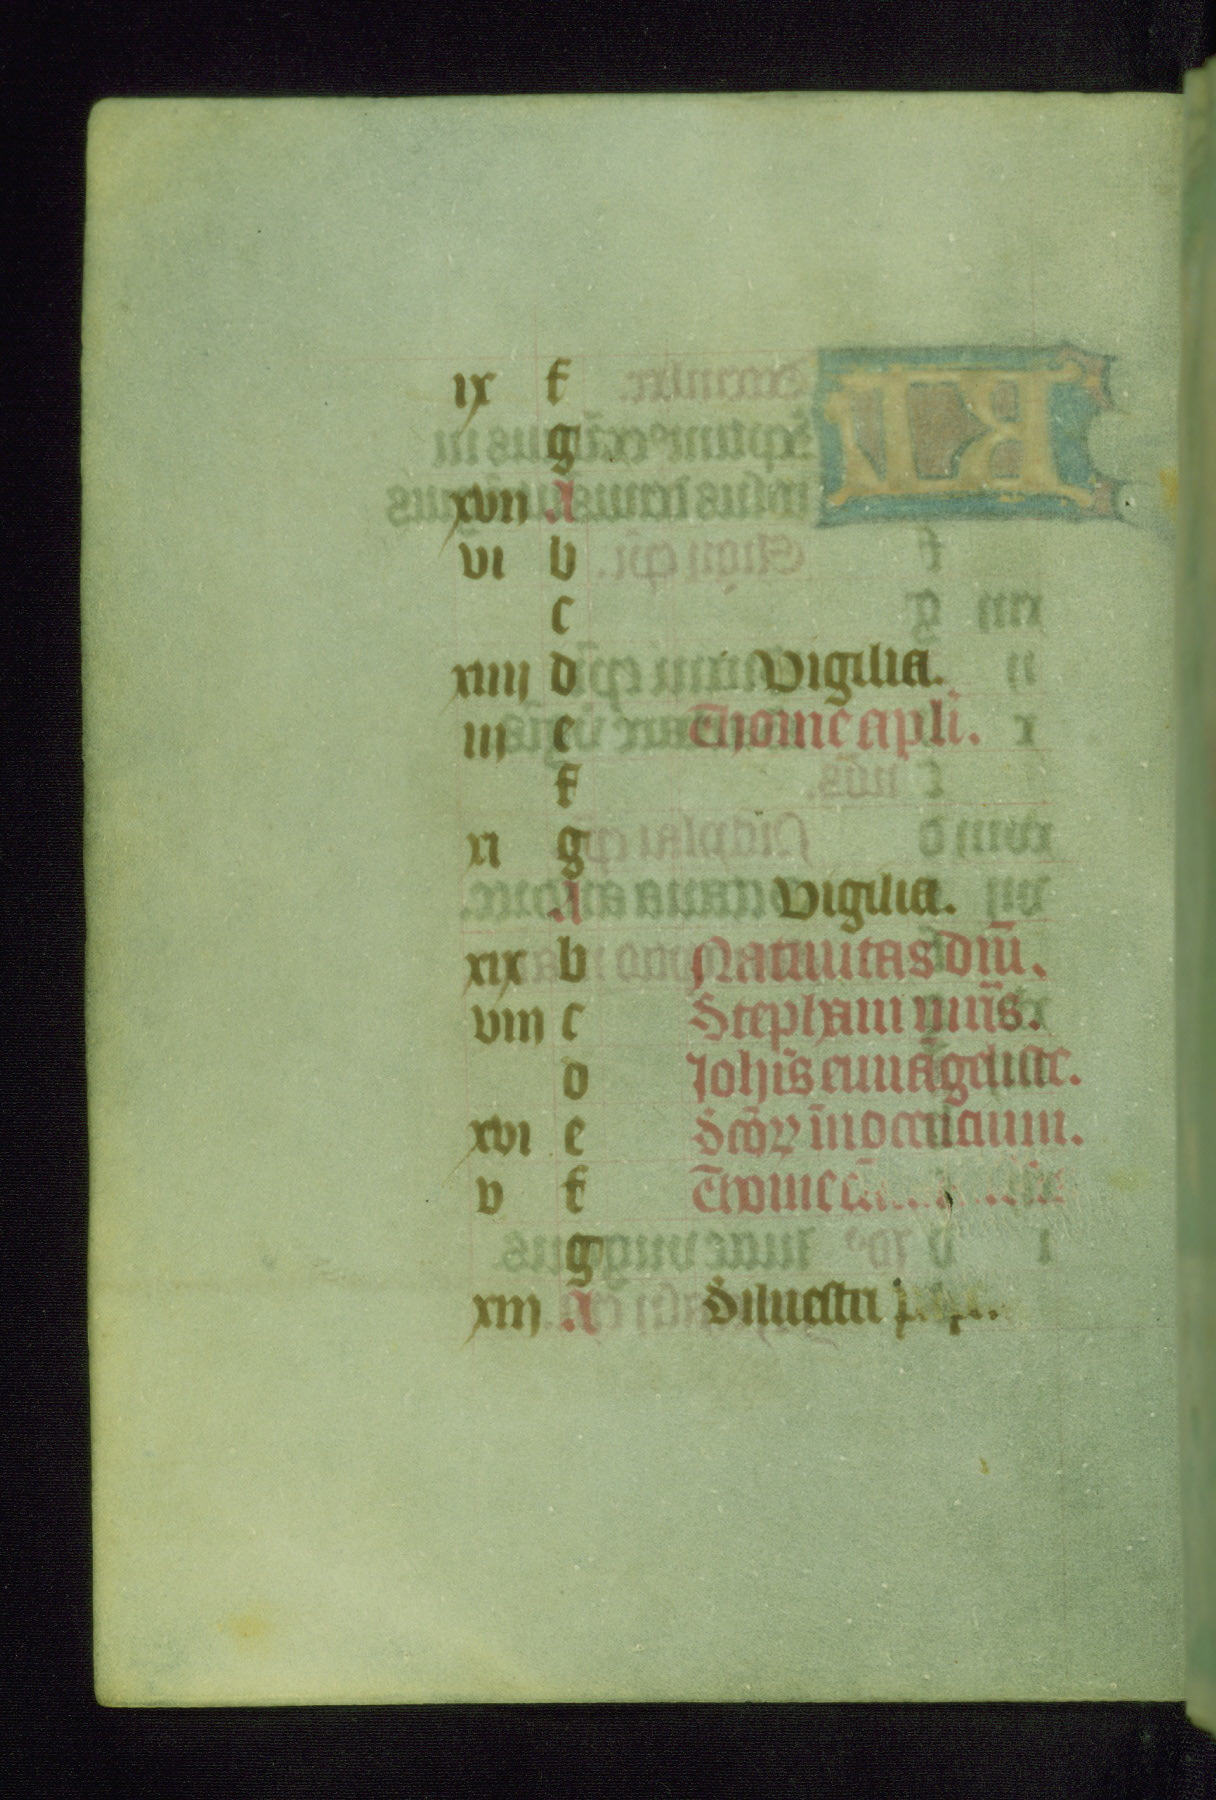 ix f
g
xvii A
vi b
c
xiiii d Vigilia.
iii e Thome apli.
f
xi g
A Vigilia.
xix b Natiuitas dñi.
viii c Stephani mris.
d Iohis euuãgeliste.
xvi e Scõꝝ ĩnocencium.
v f Thome
g
xiii A Siluestri